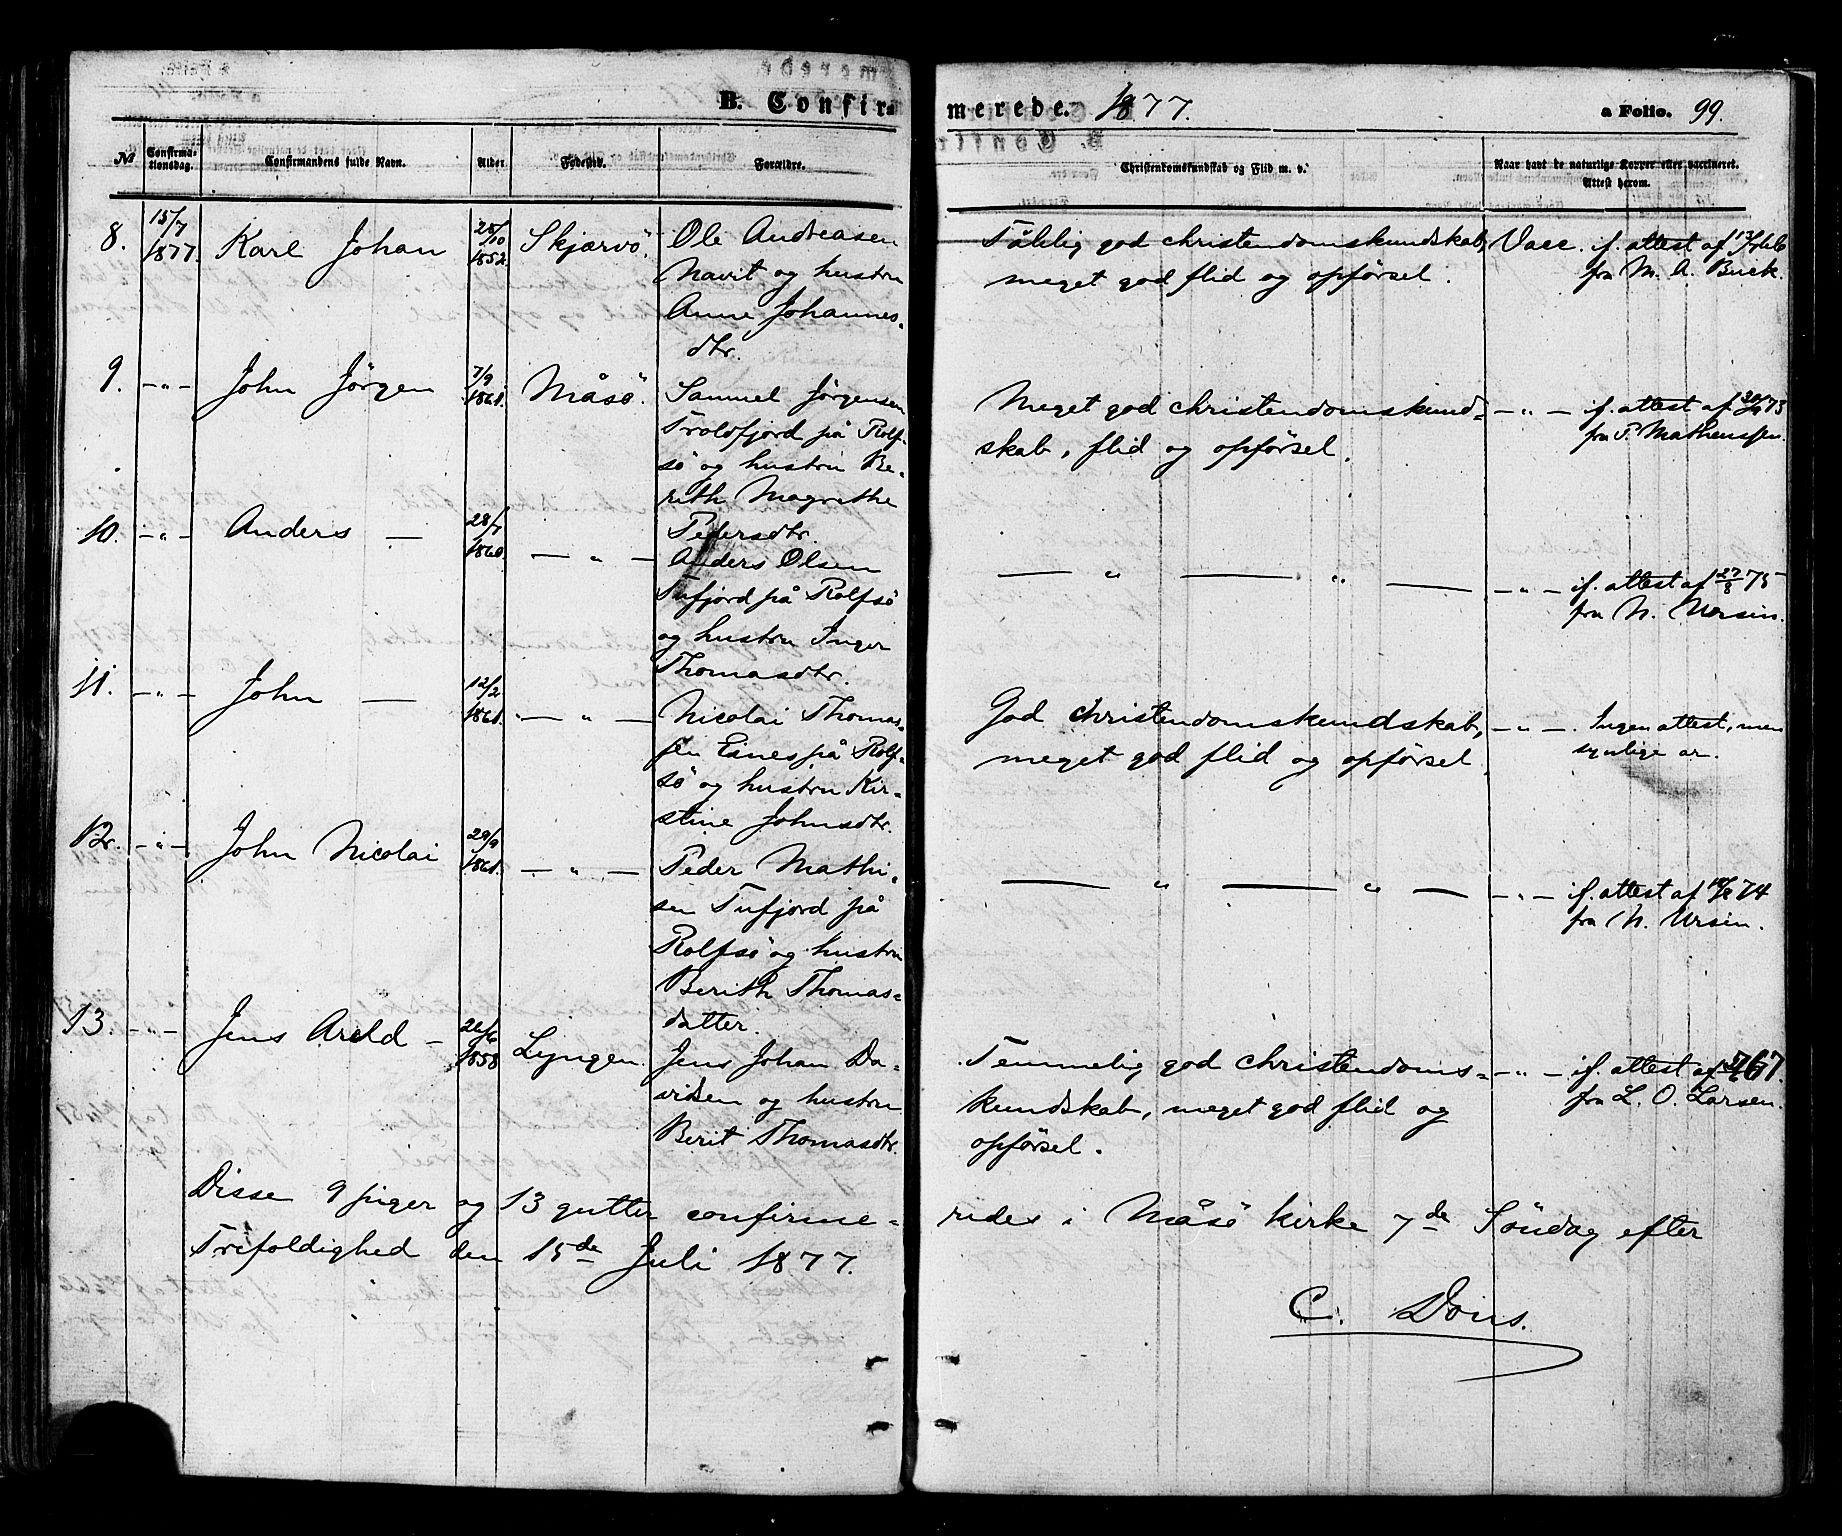 B. Confirmerede. 1877. a Folio. 99.
№ Confirmationsdag. Confirmandens fulde Navn. Alder. Fødested. Forældre. Christendomskundskab og Flid m. v. Naar havt de naturlige Kopper eller vaccineret. Attest herom.
8. 15/7 1877. Karl Johan 25/10 1852. Skjærvö. Ole Andreasen
Navit og hustru
Anne Johannes-
dtr.
Tålelig god christendomskundskab,
meget god flid og opförsel.
Vacc. if. attest af
fra M. A. Buck.
9. -"- John Jörgen 7/9 1861. Måsö. Samuel Jörgensen
Troldfjord på Rolf-
sö og hustru Be-
rith Magrethe
Pedersdtr.
Meget god christendomskund-
skab, flid og opförsel.
-"- if. attest af 73
fra P. Mathenssen.
10. -"- Anders — 28/7 1860. — " — Anders Olsen
Tufjord på Rolfsö
og hustru Inger
Thomasdtr.
— " — " — -"- if. attest af 27/8 75
fra N. Ursin.
11. -"- John — 12/2 1861. — " — Nicolai Thomas-
sen Eines på Rolf-
sö og hustru Kir-
stine Johnsdtr.
God christendomskundskab,
meget god flid og opförsel.
-"-. Ingen attest, men
synlige ar.
12. -"- John Nicolai 29/9 1861. — " — Peder Mathi-
sen Tufjord på
Rolfsö og hustru
Berith Thomas-
datter.
— " — " — -"- if. attest af 74
fra N. Ursin.
13. -"- Jens Areld — 1858 Lyngen. Jens Johan Da-
vidsen og hustru
Berit Thomasdtr.
Temmelig god christendoms-
kundskab, meget god flid og
opförsel.
-"- if. attest af 67.
fra L. O. Larsen.
Disse 9 piger og 13 gutter confirme-
redes i Måsö kirke 7de Söndag efter
Trefoldighed den 15de Juli 1877.
C.